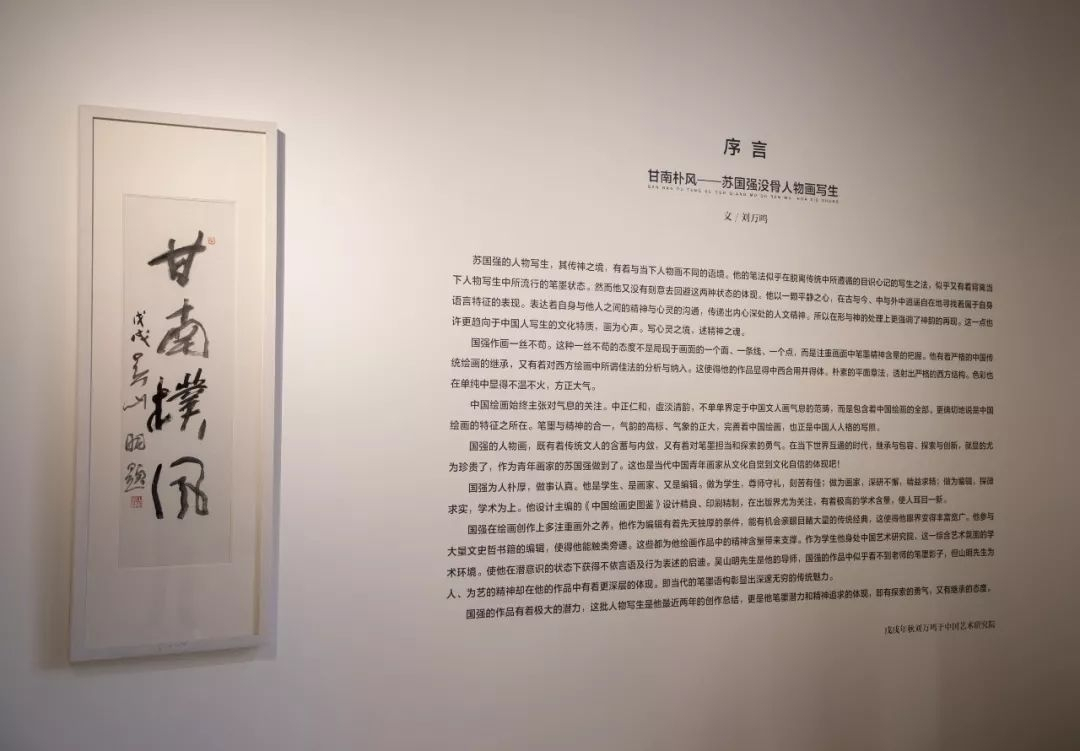 甘南樸風
戊戌吴山明題
序言
甘南朴风——苏国强没骨人物画写生
GAN NAN PU FENG SU GUO QIANG MO GU REN WU HUA XIE SHENG
文 / 刘万鸣
苏国强的人物写生，其传神之境，有着与当下人物画不同的语境。他的笔法似乎在脱离传统中所遵循的目识心记的写生之法，似乎又有着将离当
下人物写生中所流行的笔墨状态。然而他又没有刻意去回避这两种状态的体现。他以一颗平静之心，在古与今、中与外中逍遥自在地寻找着属于自身
语言特征的表现。表达着自身与他人之间的精神与心灵的沟通，传递出内心深处的人文精神。所以在形与神的处理上更强调了神韵的再现。这一点也
许更趋向于中国人写生的文化特质，画为心声。写心灵之境，述精神之魂。
国强作画一丝不苟。这种一丝不苟的态度不是局现于画面的一个面、一条线、一个点，而是注重画面中笔墨精神含量的把握。他有着严格的中国传
统绘画的继承，又有着对西方绘画中所谓佳法的分析与纳入。这使得他的作品显得中西合用并得体。朴素的平面章法，透射出严格的西方结构。色彩也
在单纯中显得不温不火，方正大气。
中国绘画始终主张对气息的关注。中正仁和，虚淡清韵，不单单界定于中国文人画气息的范畴，而是包含着中国绘画的全部。更确切地说是中国
绘画的特征之所在。笔墨与精神的合一，气韵的高标、气象的正大，完善着中国绘画，也正是中国人人格的写照。
国强的人物画，既有着传统文人的含蓄与内敛，又有着对笔墨担当和探索的勇气。在当下世界互通的时代，继承与包容、探索与创新，就显的尤
为珍贵了，作为青年画家的苏国强做到了。这也是当代中国青年画家从文化自觉到文化自信的体现吧！
国强为人朴厚，做事认真。他是学生、是画家、又是编辑。做为学生，尊师守礼，刻苦有佳；做为画家，深研不懈，精益求精；做为编辑，探微
求实，学术为上。他设计主编的《中国绘画史图鉴》设计精良、印刷精制，在出版界尤为关注，有着极高的学术含量，使人耳目一新。
国强在绘画创作上多注重画外之养，他作为编辑有着先天独厚的条件，能有机会亲眼目睹大量的传统经典，这使得他眼界变得丰富宽广。他参与
大量文史哲书籍的编辑，使得他能触类旁通。这些都为他绘画作品中的精神含量带来支撑。作为学生他身处中国艺术研究院，这一综合艺术氛围的学
术环境。使他在潜意识的状态下获得不依言语及行为表述的启迪。吴山明先生是他的导师，国强的作品中似乎看不到老师的笔墨影子，但山明先生为
人、为艺的精神却在他的作品中有着更深层的体现。即当代的笔墨语构彰显出深邃无穷的传统魅力。
国强的作品有着极大的潜力，这批人物写生是他最近两年的创作总结，更是他笔墨潜力和精神追求的体现，即有探索的勇气，又有继承的态度。
戊戌年秋刘万鸣于中国艺术研究院